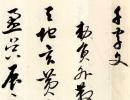 千字文
敕員外散
天地玄黄
盈昃辰